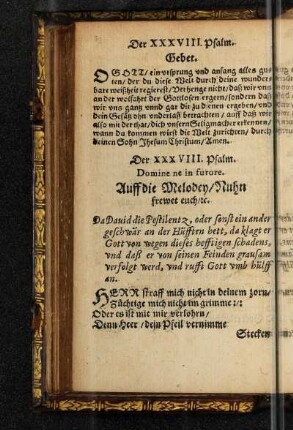 Der XXXVIII. Psalm.
Gebet.
O GOTT / ein vrsprung vnd anfang alles gu-
ten / der du diese Welt durch deine wunder
bare weißheit regierest / Verhenge nicht / daß wir vns
an der wolfahrt der Gottlosen ergern / sondern daß
wir vns gantz vnnd gar dir zu dienen ergeben / vnd
dein Gesätz ohn vnderlaß betrachten / auff daß wir
also mit der that / dich vnsern Seligmacher erkennen /
wann du kommen wirst die Welt zurichten / durch
deinen Sohn Jhesum Christum / Amen.
Der XXXVIII. Psalm.
Domine ne in furore.
Auff die Melodey / Nuhn
frewet euch / ꝛc.
Da Dauid die Pestilentz, oder sonst ein ander
geschwär an der Hüfften hett, da klagt er
Gott von wegen dieses hefftigen schadens,
vnd daß er von seinen Feinden grausam
verfolgt werd, vnd rufft Gott vmb hülff
an.
HERR straff mich nicht in deinem zorn /
Züchtige mich nicht im grimme
Oder es ist mit mir verlohrn /
Denn Herr / dein Pfeil vernimme
Stecken